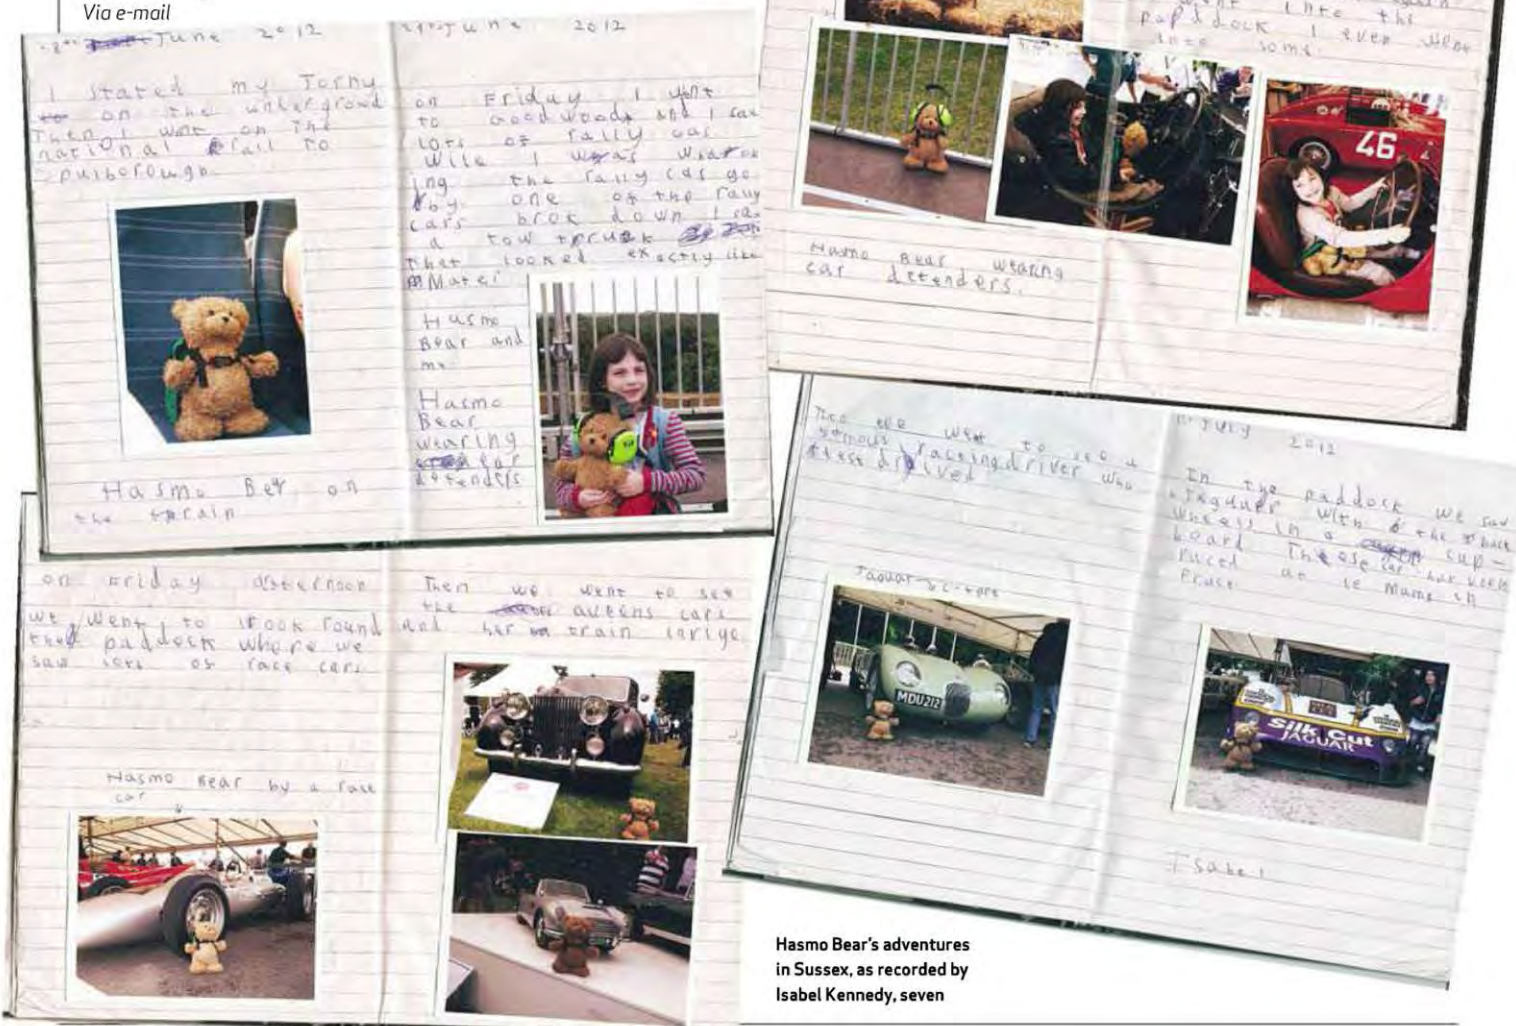 Via e-mail
June 2012
I stated my Jorny
on the undergroud
Then I went on the
national rail to
pulborough.
Hasmo Ber on
the train
June 2012
on Friday I went
to Goodwood and I saw
lots of rally cas.
Wile I was
ing the rally cas go
by. one of the rally
cars brok down I saw
a tow truck
that looked exactly like
Mater
Hasmo
Bear and
me.
Hasmo
Bear
wearing
ear
defenders
into the
I even
into some.
46
Hasmo Bear wearing
ear defenders.
on Friday afternoon
we went to look round
the paddock where we
saw lots of race cars
Hasmo Bear by a race
car
Then we went to see
the queens cars
and her train
we went to see a
famous raceing driver who
July 2012
In the paddock we saw
with the back
wheels in a cup-
board
raced at le mans in
Jaguar c-type
MDU 212
Silk Cut
JAGUAR
Isabel
Hasmo Bear's adventures
in Sussex, as recorded by
Isabel Kennedy, seven